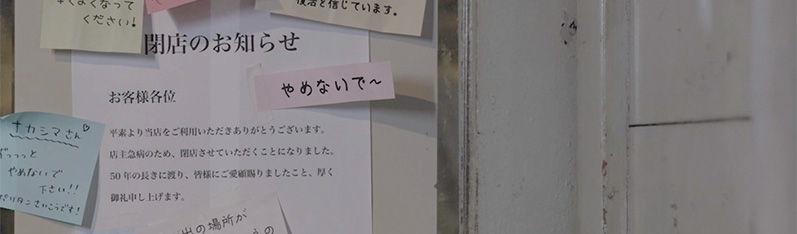 くなって
ください!
復活を信じています。
閉店のお知らせ
やめないで~
お客様各位
平素より当店をご利用いただきありがとうございます。
店主急病のため、閉店させていただくことになりました。
50年の長きに渡り、皆様にご愛顧賜りましたこと、厚く
御礼申し上げます。
ナカシマさん♡
ずっっっと
やめないで
下さい!!
ナポリタンさいこうです!
出の場所が
うの